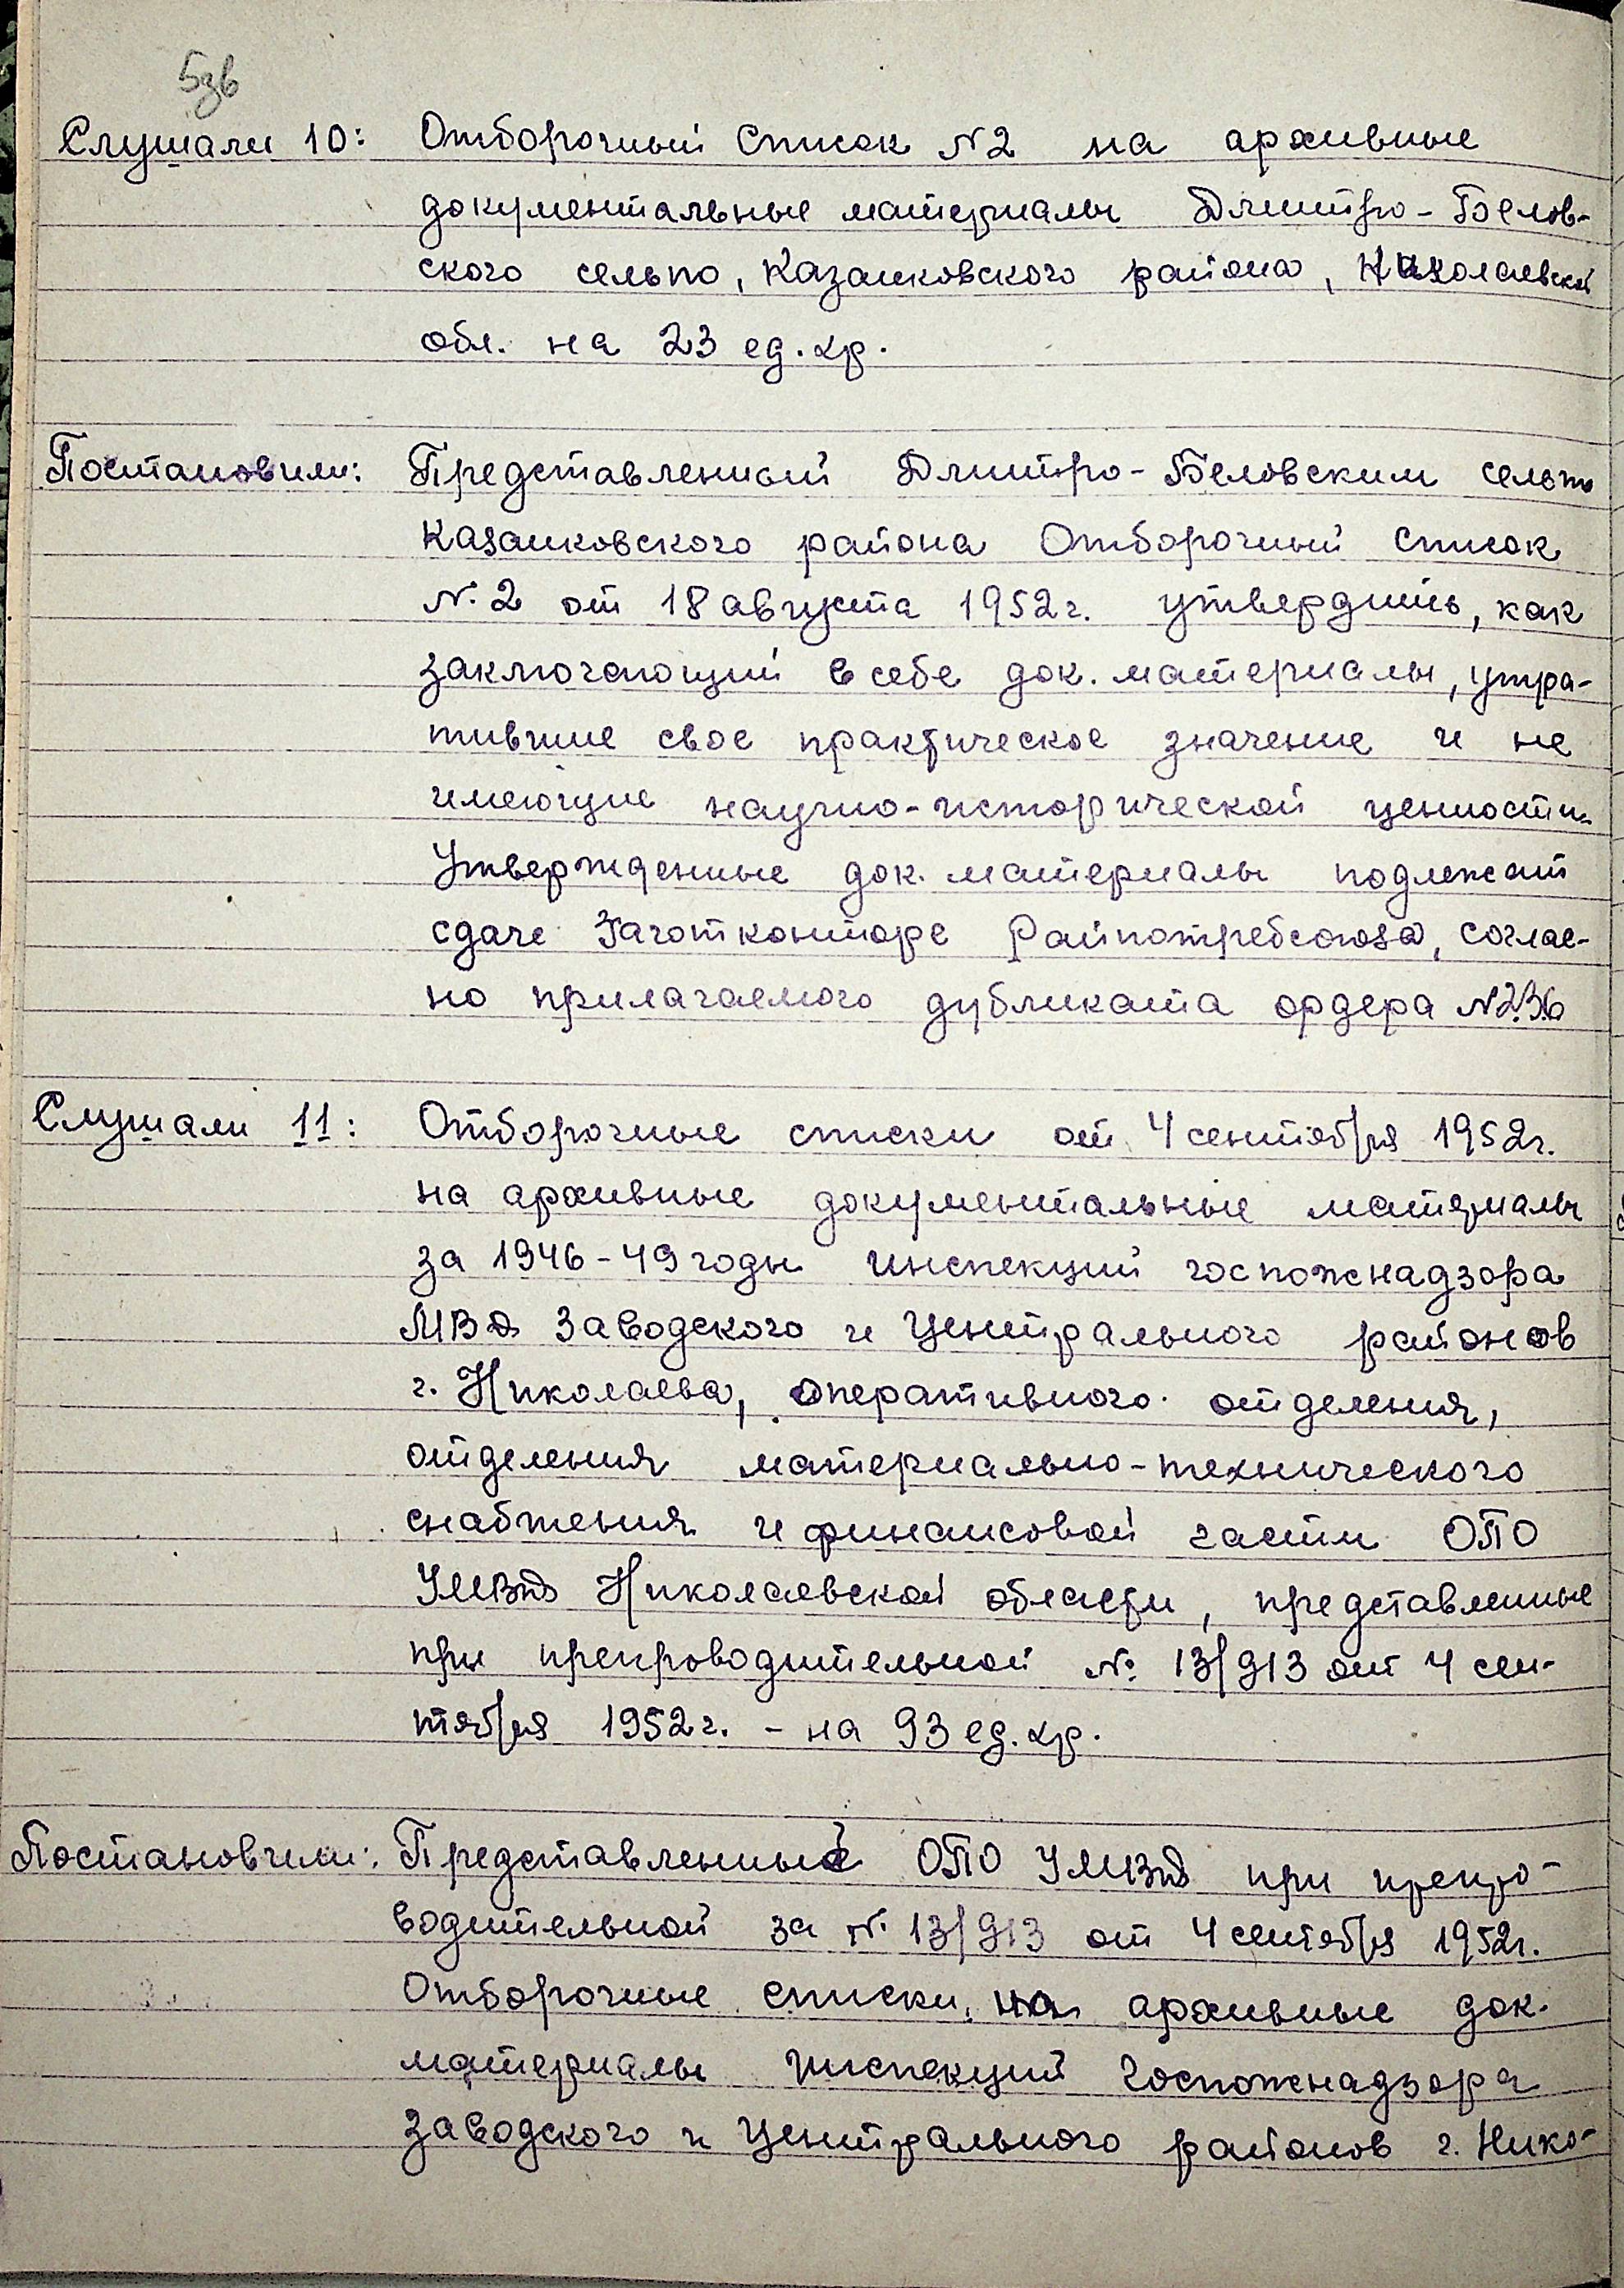 5зв
Слушали 10: Отборочный Список №2 на архивные
документальные материалы Дмитро-Белов-
ского сельпо, Казанковского района, Николаевской
обл. на 23 ед. хр.
Постановили: Представленный Дмитро-Беловским сельпо
Казанковского района Отборочный список
№ 2 от 18 августа 1952г. утвердить, как
заключающий в себе док. материалы, утра-
тившие свое практическое значение и не
имеющие научно-исторической ценности.
Утвержденные док. материалы подлежат
сдаче Заготконторе Райпотребсоюза, соглас-
но прилагаемого дубликата ордера №236
Слушали 11: Отборочные списки от 4 сентября 1952г.
на архивные документальные материалы
за 1946-49 годы инспекций госпожнадзора
МВД Заводского и Центрального районов
г. Николаева, оперативного отделения,
отделения материально-технического
снабжения и финансовой части ОПО
УМВД Николаевской области, представленные
при препроводительной № 13/913 от 4 сен-
тября 1952г. - на 93 ед. хр.
Постановили: Представленные ОПО УМВД при препро-
водительной за № 13/913 от 4 сентября 1952г.
Отборочные списки на архивные док.
материалы инспекций Госпожнадзора
Заводского и Центрального районов г. Нико-